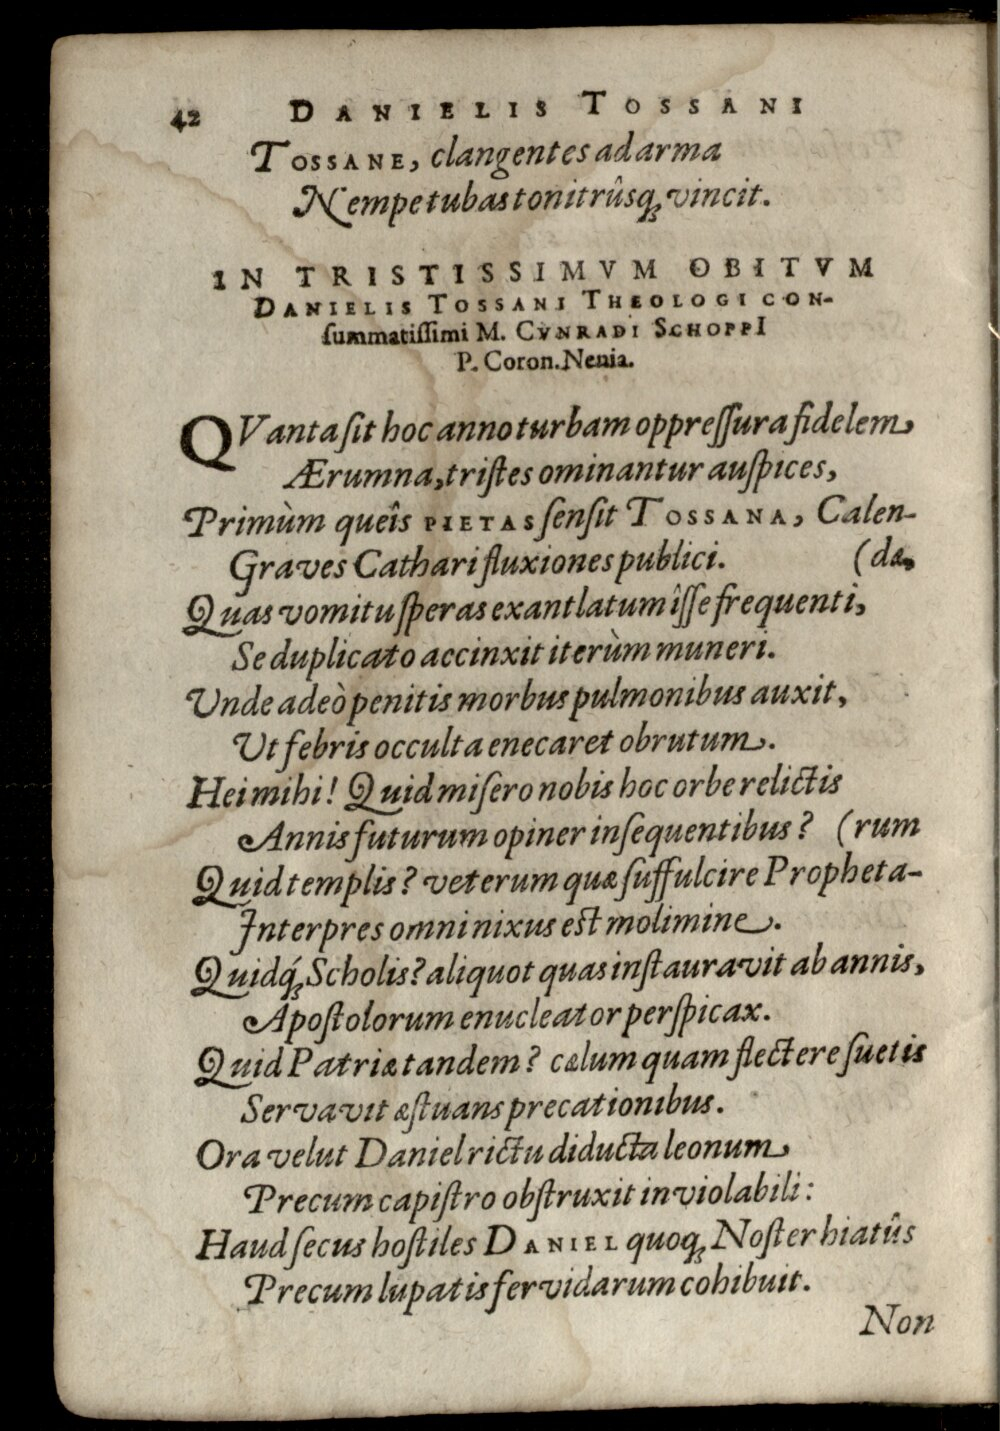 42 DANIELIS TOSSANI
TOSSANE, clangentes ad arma
Nempe tubas tonitrûsq́; vincit.
IN TRISTISSIMVM OBITVM
DANIELIS TOSSANI THEOLOGI CON-
ſummatiſſimi M. CVNRADI SCHOPPI
P. Coron. Nenia.
QVanta ſit hoc anno turbam oppreſſura fidelem,
Ærumna, triſtes ominantur auſpices,
Primùm queîs PIETAS ſenſit TOSSANA, Calen-
Graves Cathari fluxiones publici. (dæ,
Quas vomitu ſperas exantlatum îſſe frequenti,
Se duplicato accinxit iterùm muneri.
Unde adeò penitis morbus pulmonibus auxit,
Ut febris occulta enecaret obrutum.
Hei mihi! Quid miſero nobis hoc orbe relictis
Annis futurum opiner inſequentibus? (rum
Quid templis? veterum quæ ſuffulcire Propheta-
Interpres omni nixus est molimine.
Quidq́; Scholis? aliquot quas inſtauravit ab annis,
Apoſtolorum enucleator perſpicax.
Quid Patriæ tandem? cælum quam flectere ſuetis
Servavit æſtuans precationibus.
Ora velut Daniel rictu diducta leonum
Precum capiſtro obſtruxit inviolabili:
Haud ſecus hoſtiles DANIEL quoq; Noſter hiatûs
Precum lupatis fervidarum cohibuit.
Non